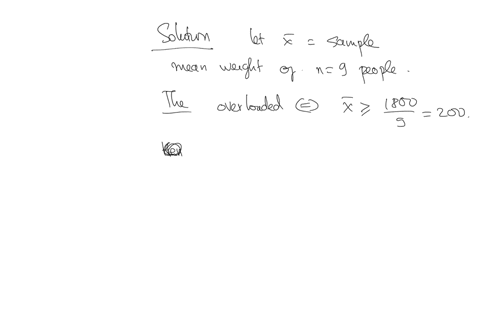 Solution let x̄ = sample
mean weight of n=9 people.
The overloaded ⇔ x̄ ≥ 1800/9 = 200.